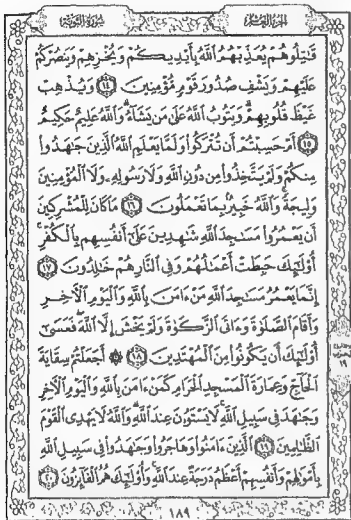 الجزء العاشر سورة التوبة
قَٰتِلُوهُمْ يُعَذِّبْهُمُ ٱللَّهُ بِأَيْدِيكُمْ وَيُخْزِهِمْ وَيَنصُرْكُمْ
عَلَيْهِمْ وَيَشْفِ صُدُورَ قَوْمٍ مُّؤْمِنِينَ ١٤ وَيُذْهِبْ
غَيْظَ قُلُوبِهِمْ وَيَتُوبُ ٱللَّهُ عَلَىٰ مَن يَشَآءُ وَٱللَّهُ عَلِيمٌ حَكِيمٌ
١٥ أَمْ حَسِبْتُمْ أَن تُتْرَكُوا۟ وَلَمَّا يَعْلَمِ ٱللَّهُ ٱلَّذِينَ جَٰهَدُوا۟
مِنكُمْ وَلَمْ يَتَّخِذُوا۟ مِن دُونِ ٱللَّهِ وَلَا رَسُولِهِۦ وَلَا ٱلْمُؤْمِنِينَ
وَلِيجَةً وَٱللَّهُ خَبِيرٌۢ بِمَا تَعْمَلُونَ ١٦ مَا كَانَ لِلْمُشْرِكِينَ
أَن يَعْمُرُوا۟ مَسَٰجِدَ ٱللَّهِ شَٰهِدِينَ عَلَىٰٓ أَنفُسِهِم بِٱلْكُفْرِ
أُو۟لَٰٓئِكَ حَبِطَتْ أَعْمَٰلُهُمْ وَفِى ٱلنَّارِ هُمْ خَٰلِدُونَ ١٧
إِنَّمَا يَعْمُرُ مَسَٰجِدَ ٱللَّهِ مَنْ ءَامَنَ بِٱللَّهِ وَٱلْيَوْمِ ٱلْءَاخِرِ
وَأَقَامَ ٱلصَّلَوٰةَ وَءَاتَى ٱلزَّكَوٰةَ وَلَمْ يَخْشَ إِلَّا ٱللَّهَ فَعَسَىٰٓ
أُو۟لَٰٓئِكَ أَن يَكُونُوا۟ مِنَ ٱلْمُهْتَدِينَ ١٨ ۞ أَجَعَلْتُمْ سِقَايَةَ
ٱلْحَآجِّ وَعِمَارَةَ ٱلْمَسْجِدِ ٱلْحَرَامِ كَمَنْ ءَامَنَ بِٱللَّهِ وَٱلْيَوْمِ ٱلْءَاخِرِ
وَجَٰهَدَ فِى سَبِيلِ ٱللَّهِ لَا يَسْتَوُۥنَ عِندَ ٱللَّهِ وَٱللَّهُ لَا يَهْدِى ٱلْقَوْمَ
ٱلظَّٰلِمِينَ ١٩ ٱلَّذِينَ ءَامَنُوا۟ وَهَاجَرُوا۟ وَجَٰهَدُوا۟ فِى سَبِيلِ ٱللَّهِ
بِأَمْوَٰلِهِمْ وَأَنفُسِهِمْ أَعْظَمُ دَرَجَةً عِندَ ٱللَّهِ وَأُو۟لَٰٓئِكَ هُمُ ٱلْفَآئِزُونَ ٢٠
١٨٩